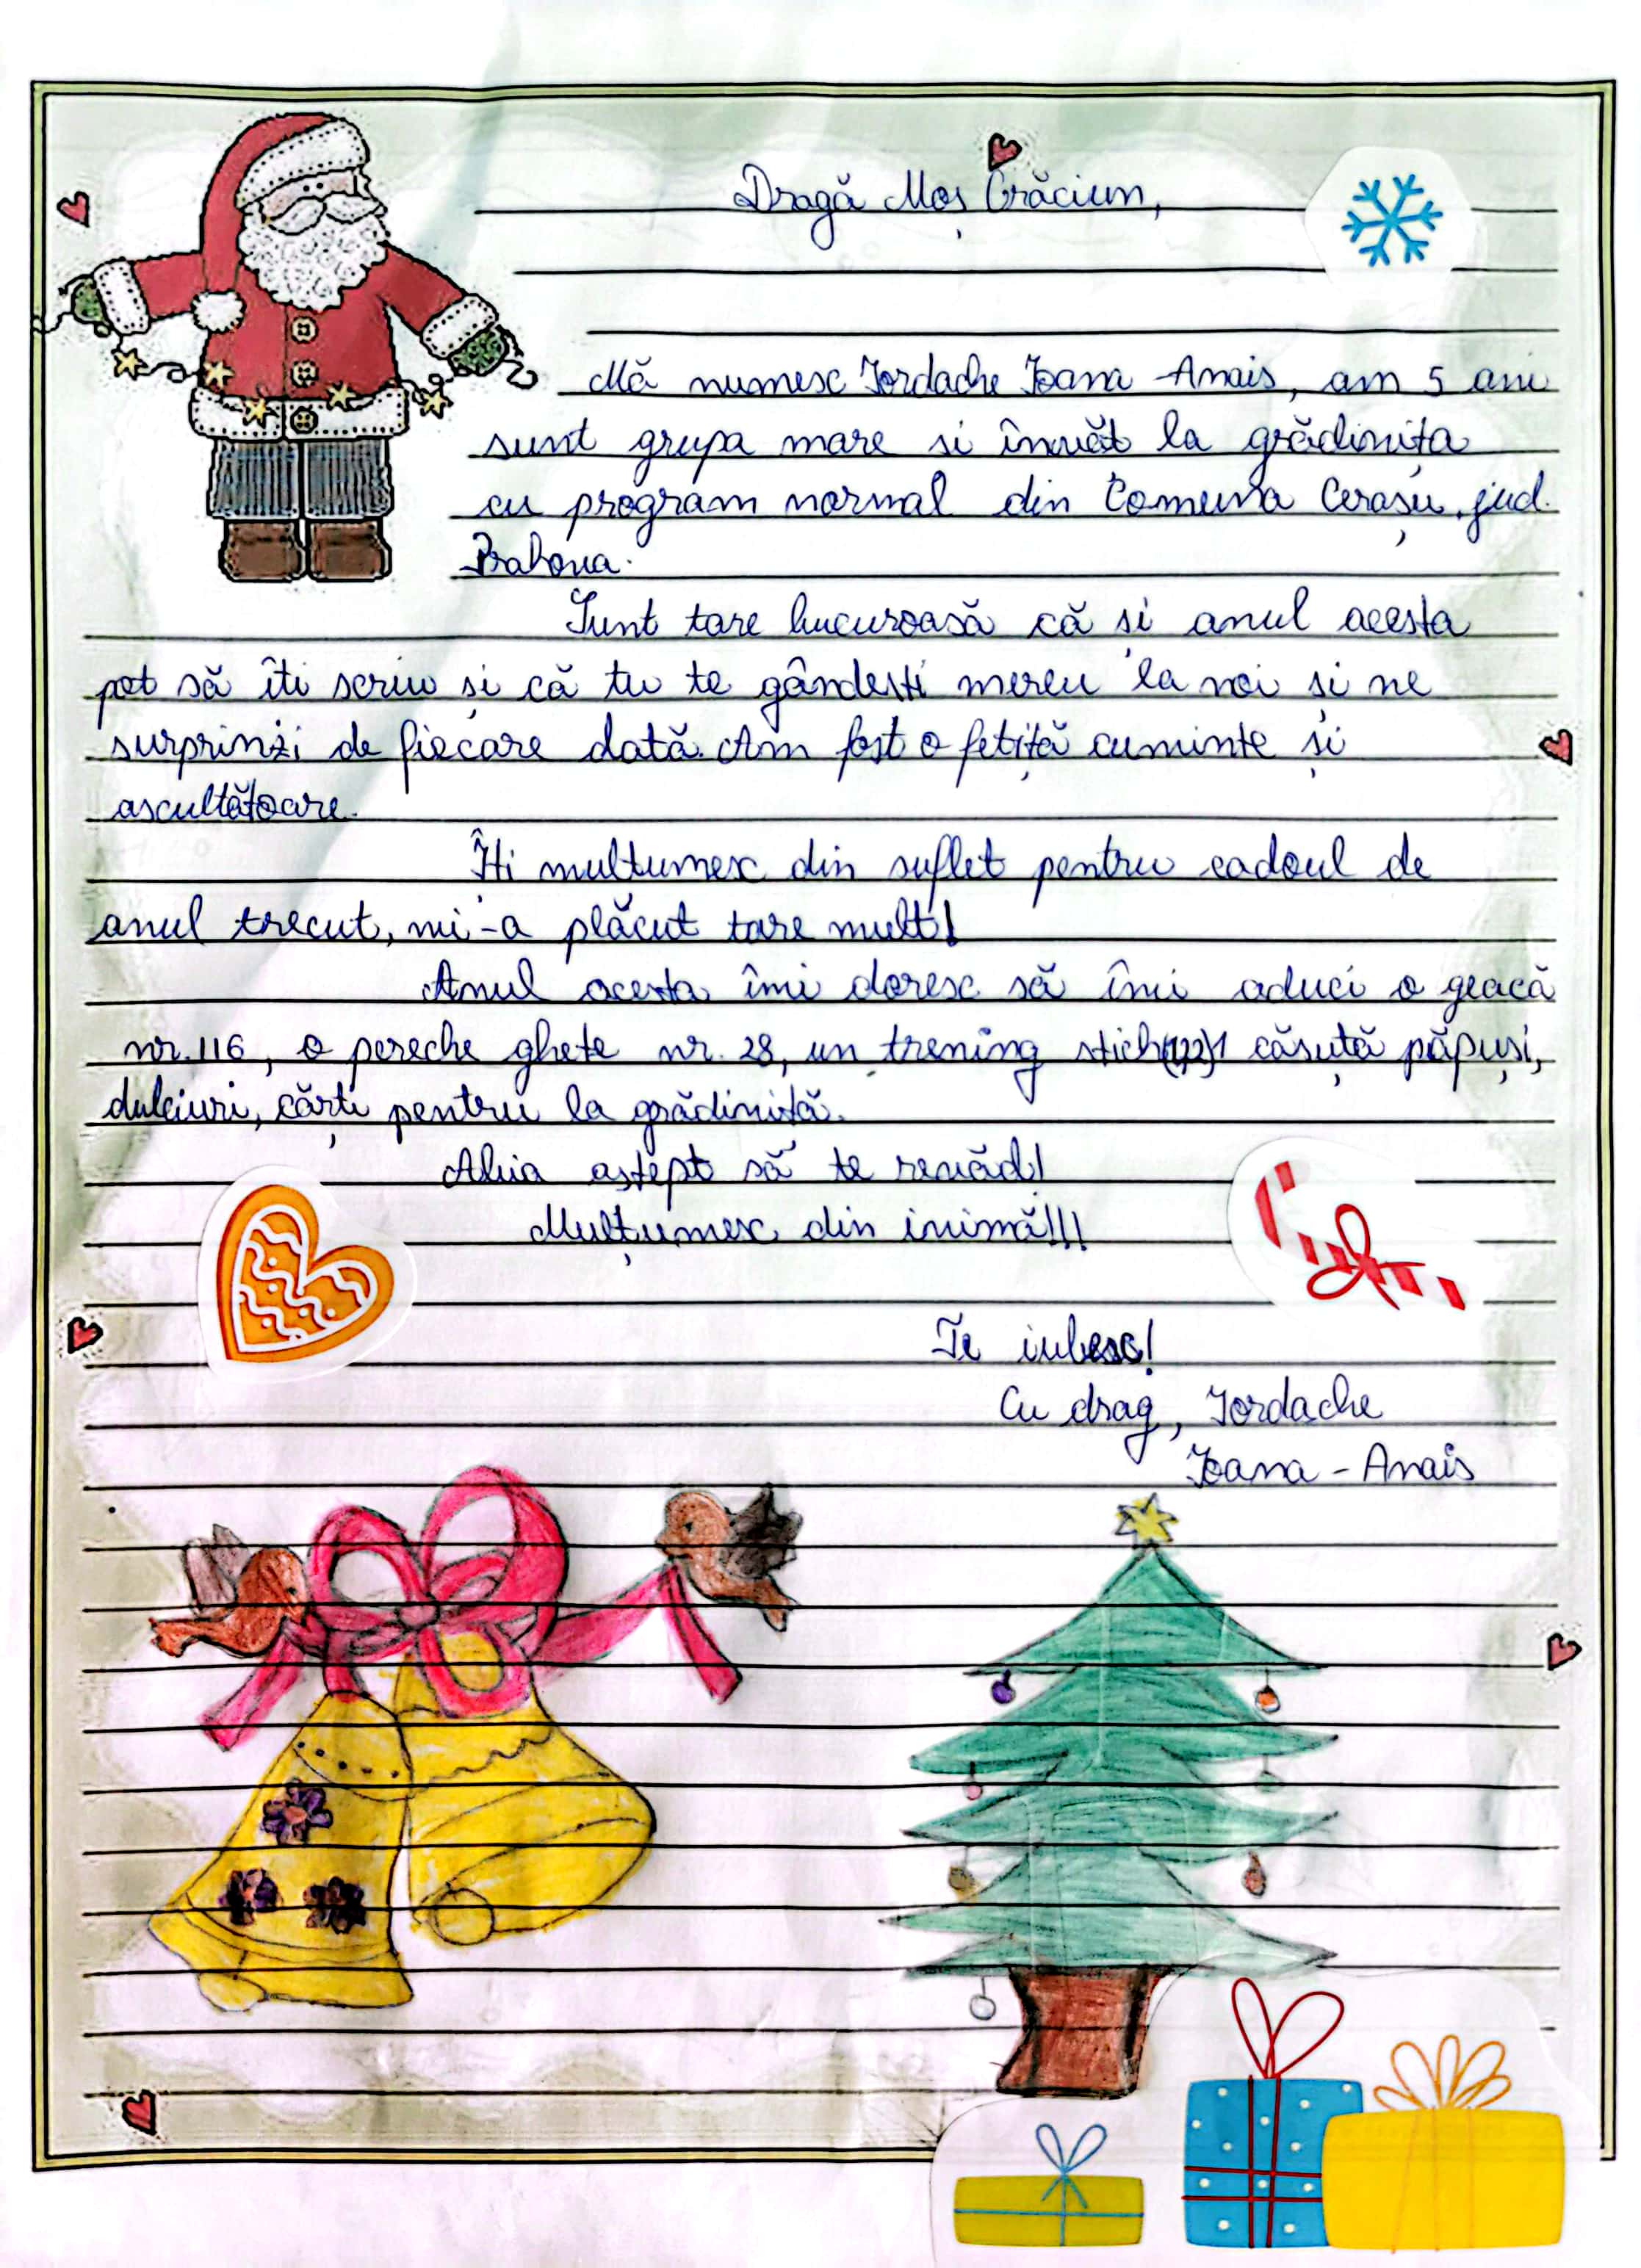 Dragă Moș Crăciun,
Mă numesc Iordache Ioana-Anais, am 5 ani
sunt grupa mare si învăt la grădinița
cu program normal din Comuna Cerașu, jud.
Prahova.
Sunt tare bucuroasă că și anul acesta
pot să îti scriu și că tu te gândești mereu la noi și ne
surprinzi de fiecare dată. Am fost o fetiță cuminte și
ascultătoare.
Îti multumesc din suflet pentru cadoul de
anul trecut, mi-a plăcut tare mult!
Anul acesta îmi doresc să îmi aduci o geacă
nr. 116, o pereche ghete nr. 28, un trening stich(122) 1 căsuță păpuși,
dulciuri, cărți pentru la grădiniță.
Abia aștept să te revăd!
Mulțumesc din inimă!!!
Te iubesc!
Cu drag, Iordache
Ioana-Anais